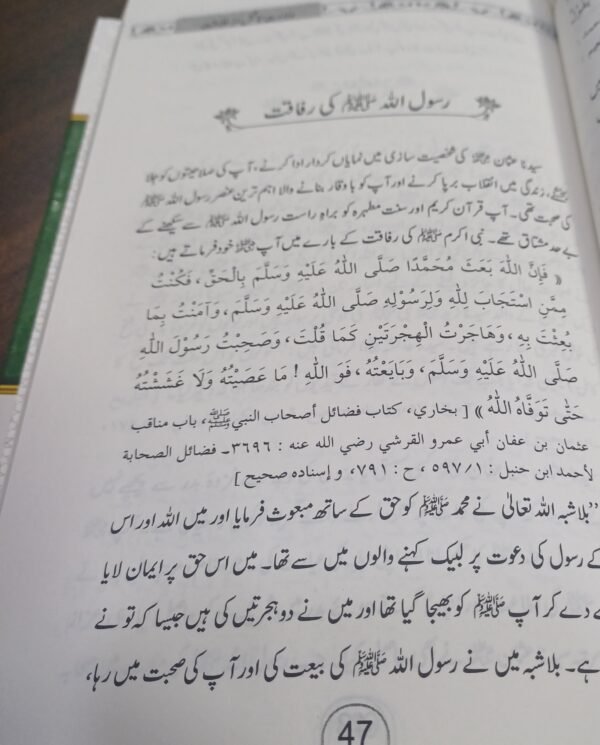 رسول اللہ ﷺ کی رفاقت
سیدنا عثمان رضی اللہ عنہ کی شخصیت سازی میں نمایاں کردار ادا کرنے، آپ کی صلاحیتوں کو جلا
بخشنے، زندگی میں انقلاب برپا کرنے اور آپ کو باوقار بنانے والا اہم ترین عنصر رسول اللہ ﷺ
کی صحبت تھی۔ آپ قرآن کریم اور سنت مطہرہ کو براہِ راست رسول اللہ ﷺ سے سیکھنے کے
بے حد مشتاق تھے۔ نبی اکرم ﷺ کی رفاقت کے بارے میں آپ رضی اللہ عنہ خود فرماتے ہیں:
« فَإِنَّ اللهَ بَعَثَ مُحَمَّدًا صَلَّى اللهُ عَلَيْهِ وَسَلَّمَ بِالْحَقِّ، فَكُنْتُ
مِمَّنِ اسْتَجَابَ لِلهِ وَلِرَسُوْلِهِ صَلَّى اللهُ عَلَيْهِ وَسَلَّمَ، وَآمَنْتُ بِمَا
بُعِثْتَ بِهِ، وَهَاجَرْتُ الْهِجْرَتَيْنِ كَمَا قُلْتَ، وَصَحِبْتُ رَسُوْلَ اللهِ
صَلَّى اللهُ عَلَيْهِ وَسَلَّمَ، وَبَايَعْتُهُ، فَوَ اللهِ! مَا عَصَيْتُهُ وَلَا غَشَشْتُهُ
حَتّٰى تَوَفَّاهُ اللهُ » [ بخاري، كتاب فضائل أصحاب النبيﷺ، باب مناقب
عثمان بن عفان أبي عمرو القرشي رضي الله عنه : ٣٦٩٦۔ فضائل الصحابة
لأحمد ابن حنبل : ٥٩٧/١، ح : ٧٩١، و إسناده صحيح ]
”بلاشبہ اللہ تعالیٰ نے محمد ﷺ کو حق کے ساتھ مبعوث فرمایا اور میں اللہ اور اس
کے رسول کی دعوت پر لبیک کہنے والوں میں سے تھا۔ میں اس حق پر ایمان لایا
دے کر آپ ﷺ کو بھیجا گیا تھا اور میں نے دو ہجرتیں کی ہیں جیسا کہ تو نے
ہے۔ بلاشبہ میں نے رسول اللہ ﷺ کی بیعت کی اور آپ کی صحبت میں رہا،
47